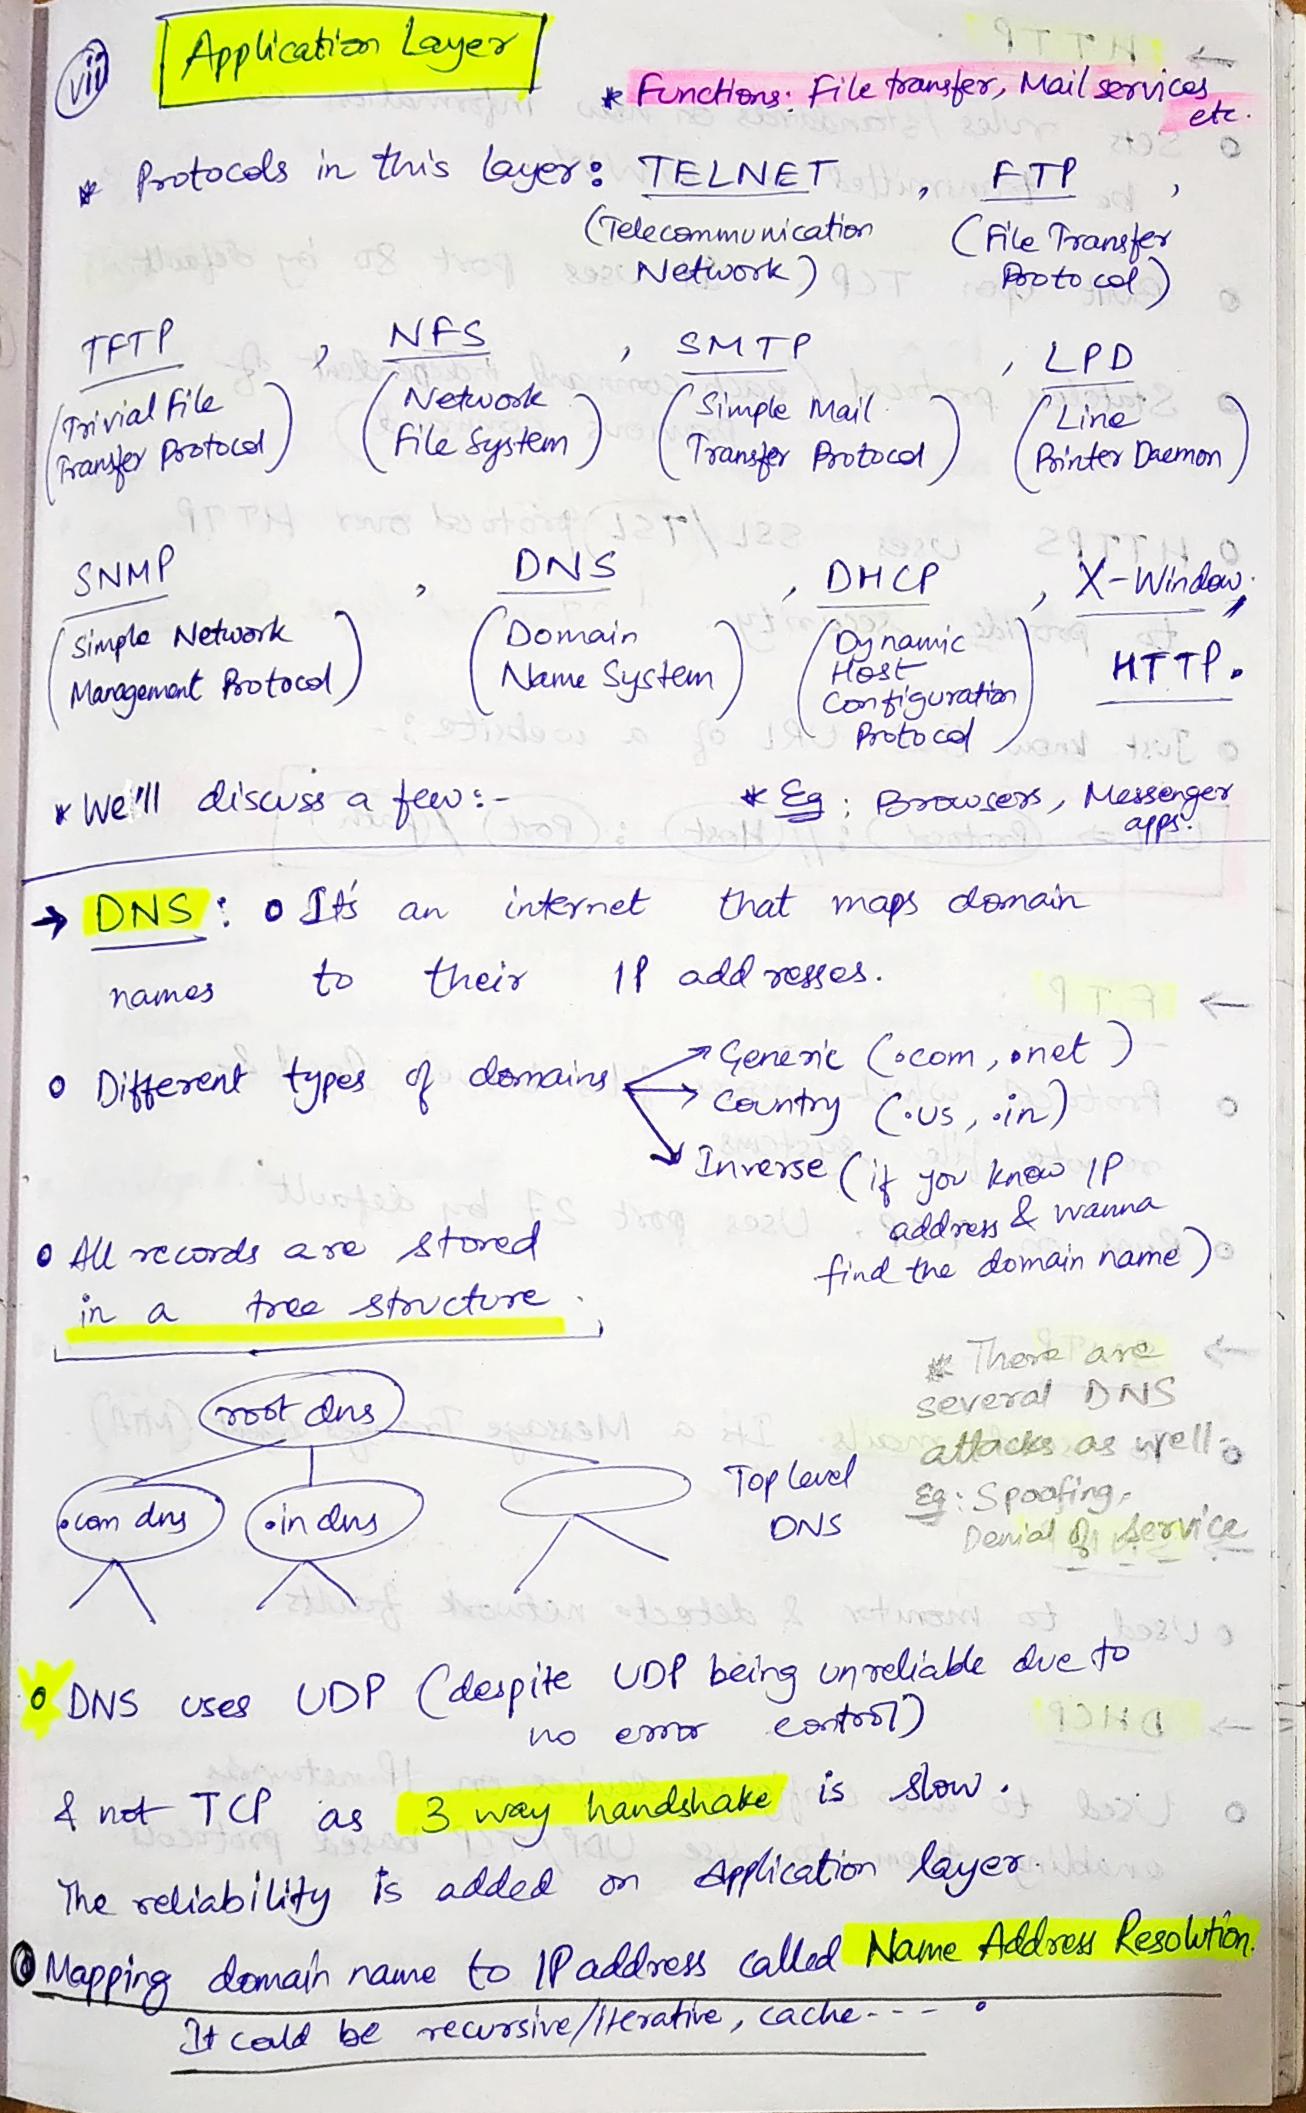 vii
Application Layer
* Functions: File transfer, Mail services, etc.
* Protocols in this layer: TELNET , FTP ,
(Telecommunication Network) (File Transfer Protocol)
TFTP , NFS , SMTP , LPD
(Trivial File Transfer Protocol) (Network File System) (Simple Mail Transfer Protocol) (Line Printer Daemon)
SNMP , DNS , DHCP , X-Window,
(Simple Network Management Protocol) (Domain Name System) (Dynamic Host Configuration Protocol) HTTP.
* We'll discuss a few:-
* Eg: Browsers, Messenger apps.
→ DNS: o It's an internet that maps domain
names to their IP addresses.
o Different types of domains
→ Generic (.com, .net)
→ Country (.us, .in)
→ Inverse (if you know IP
address & wanna
find the domain name)
o All records are stored
in a tree structure.
root dns
.com dns
.in dns
Top level
DNS
* There are
several DNS
attacks as well.
Eg: Spoofing,
Denial of Service
o DNS uses UDP (despite UDP being unreliable due to
no error control)
& not TCP as 3 way handshake is slow.
The reliability is added on Application layer.
o Mapping domain name to IP address called Name Address Resolution.
It could be recursive/iterative, cache---.